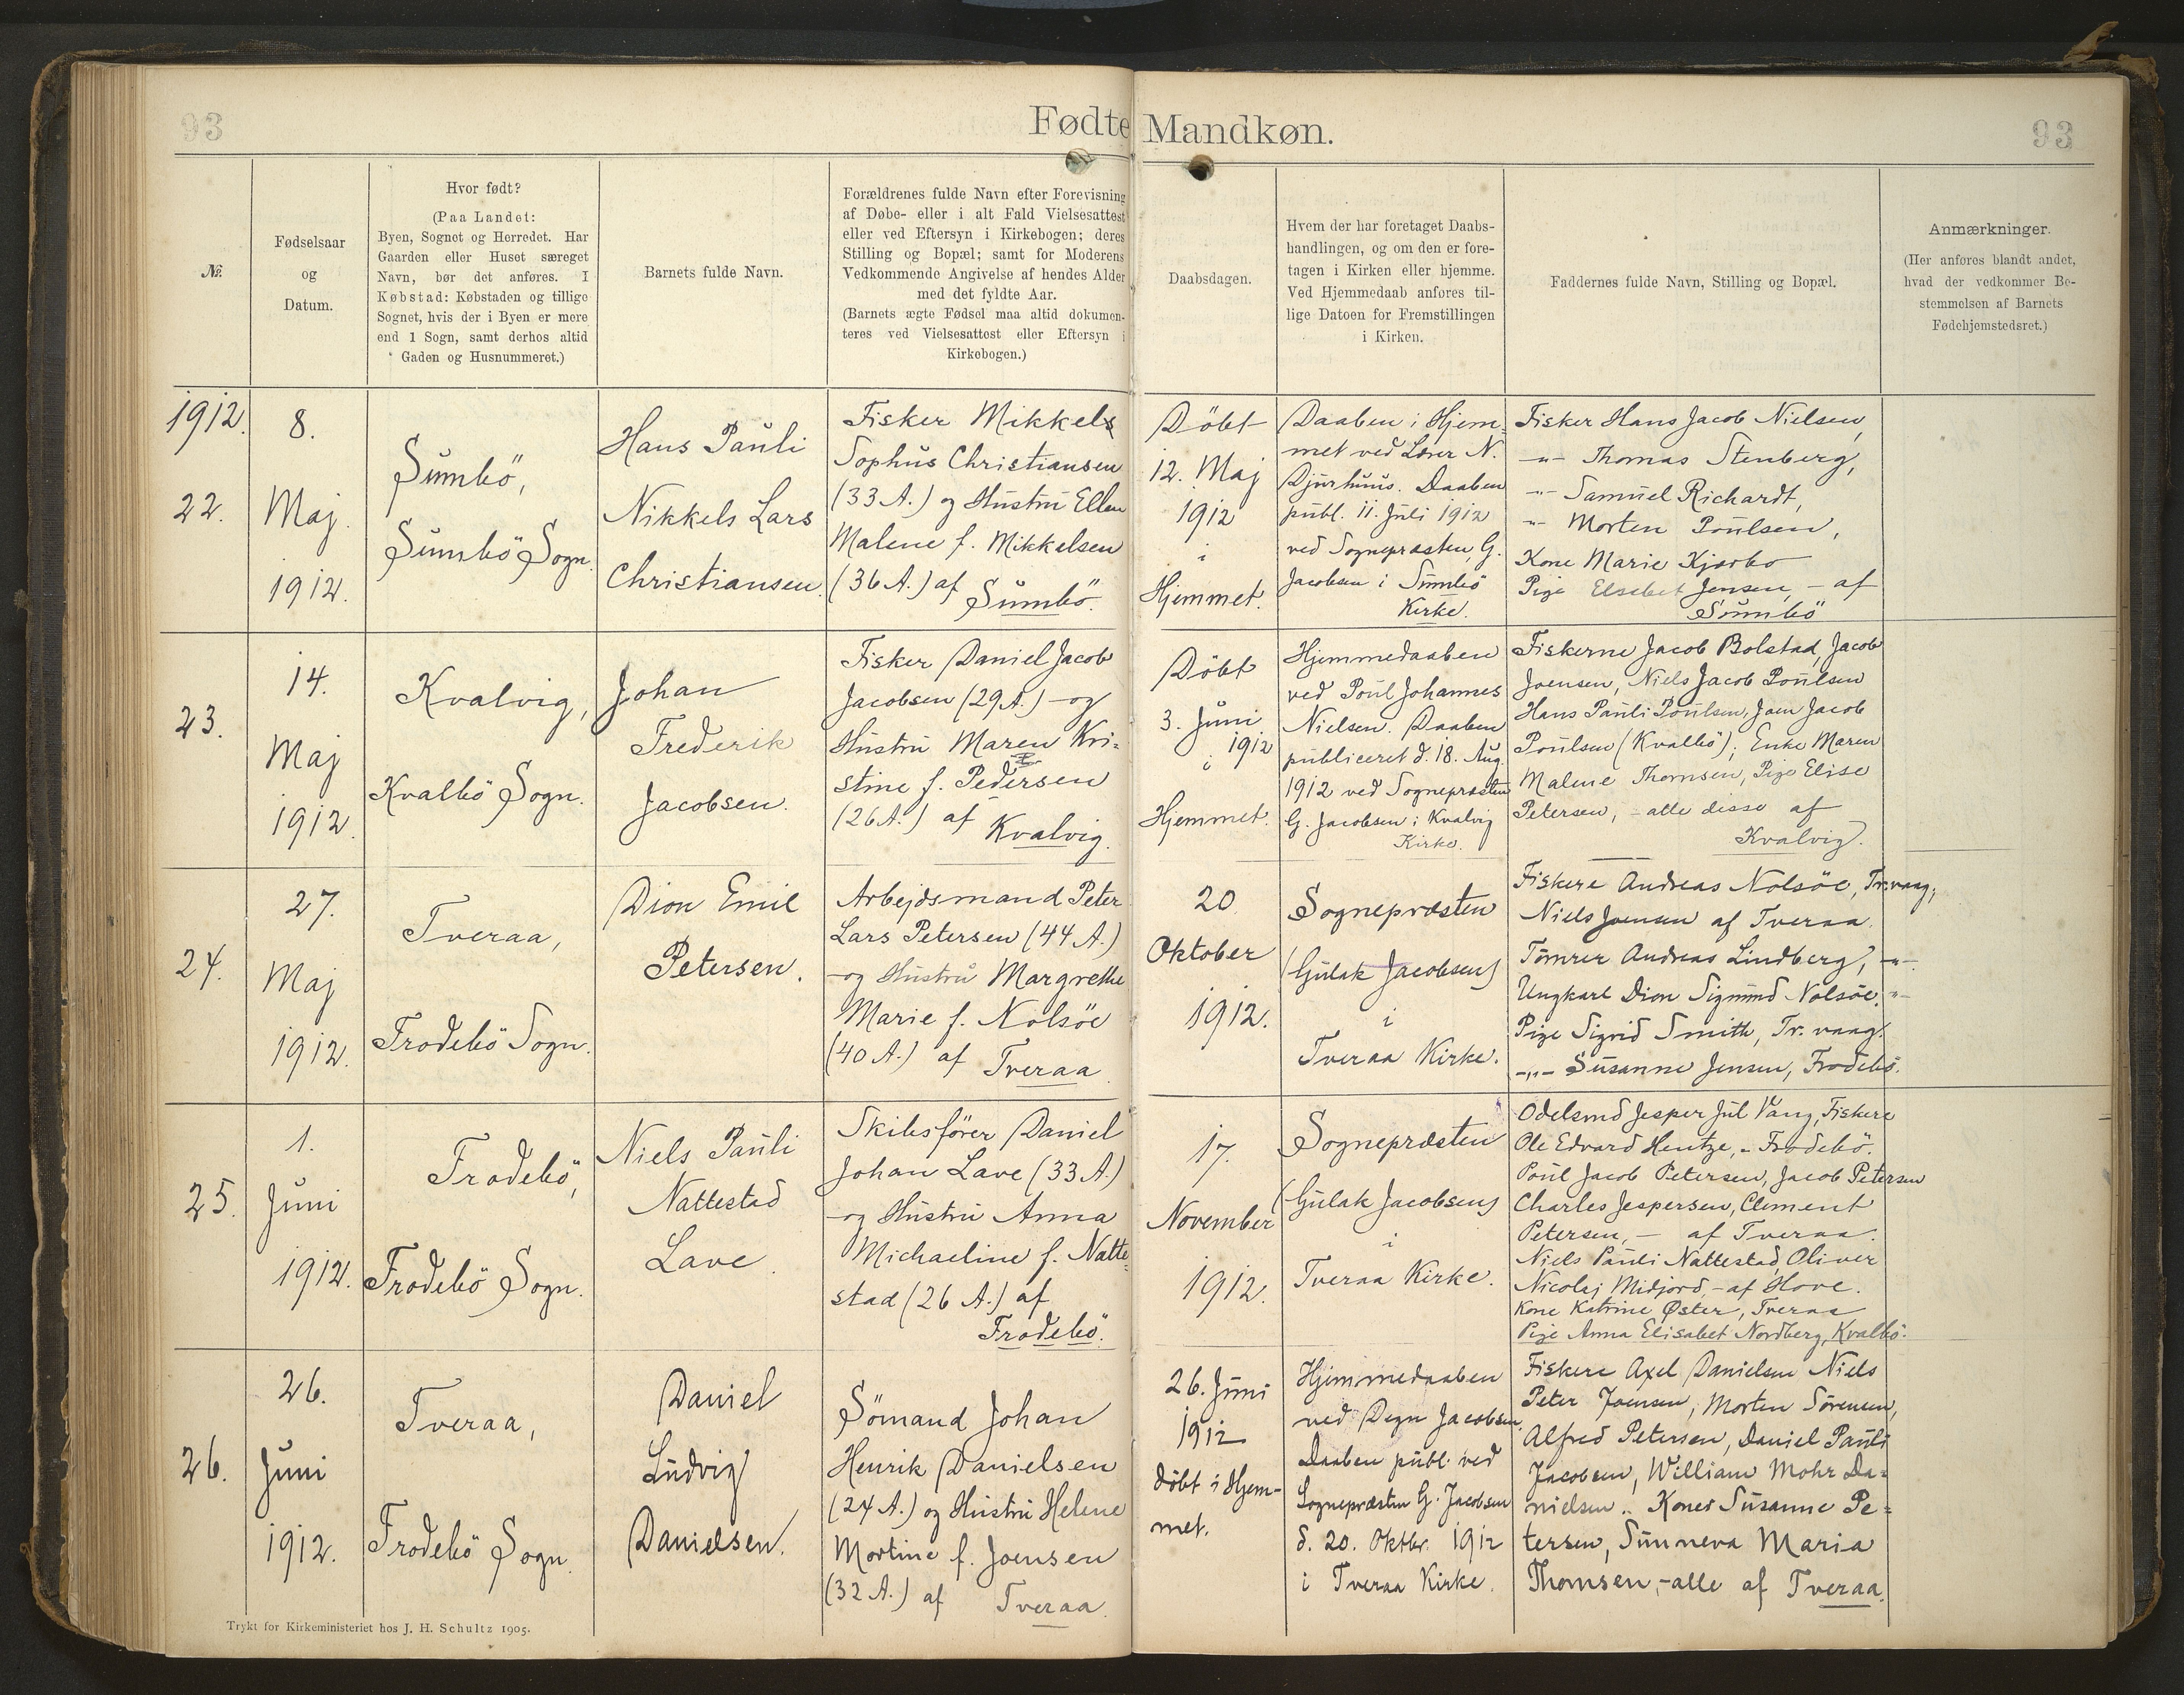 93
Fødte Mandkøn.
93
№.
Fødselsaar
og
Datum.
Hvor født?
(Paa Landet:
Byen, Sognet og Herredet. Har
Gaarden eller Huset særeget
Navn, bør det anføres. I
Købstad: Købstaden og tillige
Sognet, hvis der i Byen er mere
end 1 Sogn, samt derhos altid
Gaden og Husnummeret.)
Barnets fulde Navn.
Forældrenes fulde Navn efter Forevisning
af Døbe- eller i alt Fald Vielsesattest
eller ved Eftersyn i Kirkebogen; deres
Stilling og Bopæl; samt for Moderens
Vedkommende Angivelse af hendes Alder
med det fyldte Aar.
(Barnets ægte Fødsel maa altid dokumen-
teres ved Vielsesattest eller Eftersyn i
Kirkebogen.)
Daabsdagen.
Hvem der har foretaget Daabs-
handlingen, og om den er fore-
tagen i Kirken eller hjemme.
Ved Hjemmedaab anføres til-
lige Datoen for Fremstillingen
i Kirken.
Faddernes fulde Navn, Stilling og Bopæl.
Anmærkninger.
(Her anføres blandt andet,
hvad der vedkommer Be-
stemmelsen af Barnets
Fødehjemstedsret.)
1912.
22.
8.
Maj.
1912.
Sumbö,
Sumbö Sogn.
Hans Pauli
Nikkels Lars
Christiansen.
Fisker Mikkels
Sophus Christiansen
(33 A.) og Hustru Ellen
Malene f. Mikkelsen
(36 A.) af
Sumbö.
Döbt
12. Maj
1912
i
Hjemmet.
Daaben i Hjem-
met ved Lærer N.
Djurhuus. Daaben
publ. 11. Juli 1912
ved Sognepræsten G.
Jacobsen i Sumbö
Kirke.
Fisker Hans Jacob Nielsen,
-"- Thomas Stenberg,
-"- Samuel Richardt,
-"- Morten Poulsen,
Kone Marie Kjærbo
Pige Elsebet Jensen, - af
Sumbö
23.
14.
Maj
1912.
Kvalvig,
Kvalbö Sogn.
Johan
Frederik
Jacobsen.
Fisker Daniel Jacob
Jacobsen (29 A.) - og
Hustru Maren Kri-
stine f. Pedersen
(26 A.) af
Kvalvig.
Döbt
3. Juni
1912
i
Hjemmet.
Hjemmedaaben
ved Poul Johannes
Nielsen. Daaben
publiceret d. 18. Aug.
1912 ved Sognepræsten
G. Jacobsen i Kvalvig
Kirke.
Fiskerne Jacob Bolstad, Jacob
Joensen, Niels Jacob Poulsen
Hans Pauli Poulsen, Joen Jacob
Poulsen (Kvalbö); Enke Maren
Malene Thomsen, Pige Elise
Petersen, - alle disse af
Kvalvig.
24.
27.
Maj
1912.
Tveraa,
Frodebö Sogn.
Dion Emil
Petersen.
Arbejdsmand Peter
Lars Petersen (44 A.)
-og Hustru Margrethe
Marie f. Nolsöe
(40 A.) af Tveraa.
20.
Oktober
1912.
Sognepræsten
(Gulak Jacobsen)
i
Tveraa Kirke.
Fiskere Andreas Nolsöe, Tr.vaag;
Niels Joensen af Tveraa.
Tömrer Andreas Lindberg, -"-
Ungkarl Dion Sigmund Nolsöe, -"-
Pige Sigrid Smith, Tr. vaag.
-"- Susanne Jensen, Frodebö.
25.
1.
Juni
1912.
Frodebö,
Frodebö Sogn.
Niels Pauli
Nattestad
Lave.
Skibsförer Daniel
Johan Lave (33 A.)
-og Hustru Anna
Michaeline f. Natte-
stad (26 A.) af
Frodebö.
17.
November
1912.
Sognepræsten
(Gulak Jacobsen)
i
Tveraa Kirke.
Odelsmd Jesper Jul Vang, Fiskere
Ole Edvard Hentze, - Frodebö.
Poul Jacob Petersen, Jacob Petersen
Charles Jespersen, Clement
Petersen, - af Tveraa.
Niels Pauli Nattestad, Oliver
Nicolaj Midjord, - af Hove.
Kone Katrine Øster, Tveraa
Pige Anna Elisabet Nordberg, Kvalbö.
26.
26.
Juni
1912.
Tveraa,
Frodebö Sogn.
Daniel
Ludvig
Danielsen.
Sömand Johan
Henrik Danielsen
(24 A.) og Hustru Helene
Mortine f. Joensen
(32 A.) af Tveraa.
26. Juni
1912
döbt i Hjem-
met.
Hjemmedaaben
ved Degn Jacobsen,
Daaben publ. ved
Sognepræsten G. Jacobsen
d. 20. Oktbr. 1912
i Tveraa Kirke.
Fiskere Axel Danielsen Niels
Peter Joensen, Morten Sörensen,
Alfred Petersen, Daniel Pauli
Jacobsen, William Mohr Da-
nielsen.. Koner Susanne Pe-
tersen, Sunneva Maria
Thomsen, -alle af Tveraa.
Trykt for Kirkeministeriet hos J. H. Schultz 1905.